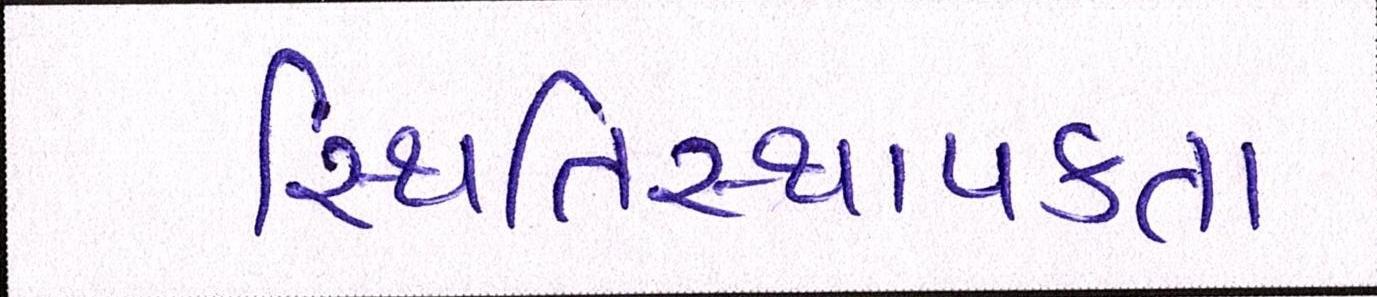 સ્થિતિસ્થાપકતા